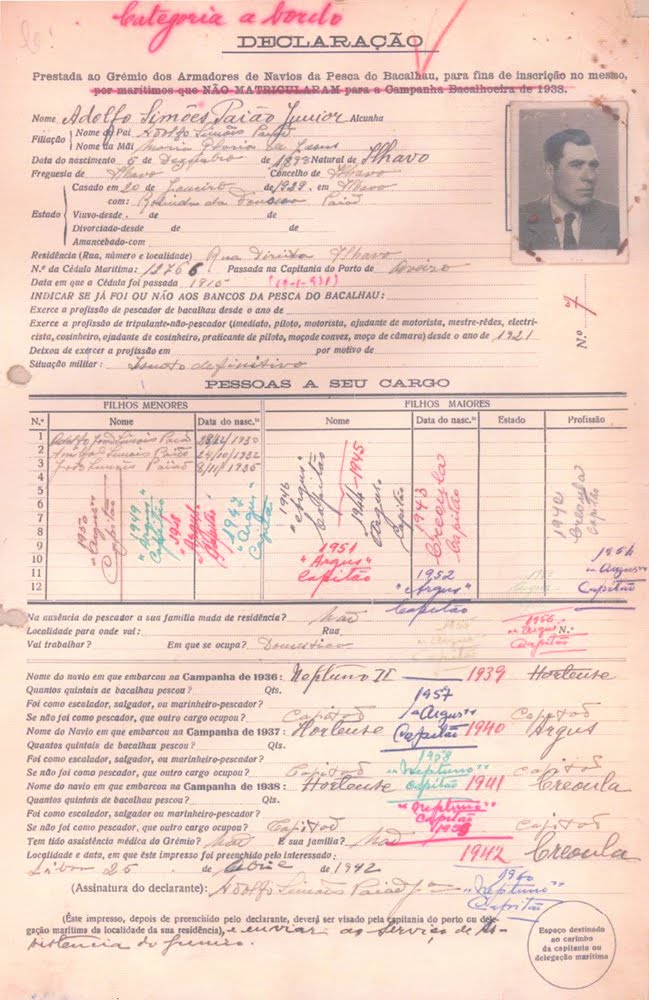 Categoria a bordo
DECLARAÇÃO
Prestada ao Grémio dos Armadores de Navios da Pesca do Bacalhau, para fins de inscrição no mesmo,
por marítimos que NÃO MATRICULARAM para a Campanha Bacalhoeira de 1938.
Nome Adolfo Simões Paião Junior Alcunha
Filiação Nome do Pai Adolfo Simões Paião
Nome da Mãi Maria Gloria de Jesus
Data do nascimento 5 de Dezembro de 1898 Natural de Ilhavo
Freguesia de Ilhavo Concelho de Ilhavo
Estado Casado em 20 de Janeiro de 1929, em Ilhavo
com: da Paião
Viuvo-desde de de
Divorciado-desde de de
Amancebado-com
Residência (Rua, número e localidade) Rua Direita Ilhavo
N.º da Cédula Marítima: Passada na Capitania do Porto de Aveiro
Data em que a Cédula foi passada
INDICAR SE JÁ FOI OU NÃO AOS BANCOS DA PESCA DO BACALHAU:
Exerce a profissão de pescador de bacalhau desde o ano de
Exerce a profissão de tripulante-não-pescador (imediato, piloto, motorista, ajudante de motorista, mestre-rêdes, electri-
cista, cosinheiro, ajudante de cosinheiro, praticante de piloto, moço de convez, moço de câmara) desde o ano de 1921
Deixou de exercer a profissão em por motivo de
Situação militar: Isento definitivo
N.º 7
PESSOAS A SEU CARGO
FILHOS MENORES FILHOS MAIORES
N.º Nome Data do nasc.to Nome Data do nasc.to Estado Profissão
1 Adolfo José Simões Paião 1930
2 Simões Paião 24/10/1932
3 João Simões Paião 8/11/1936
4
5
6
7
8
9
10
11
12
1950 "Argus" Capitão
1949 "Argus" Capitão
1948 "Argus" Capitão
1947 "Argus" Capitão
1946 "Argus" Capitão
1944-1945 "Argus" Capitão
1943 Creoula Capitão
1942 Creoula Capitão
1951 "Argus" Capitão
1952 "Argus" Capitão
1954 "Argus" Capitão
1955 "Argus" Capitão
1956 "Argus" Capitão
Na ausência do pescador a sua família muda de residência? Não
Localidade para onde vai: Rua N.º
Vai trabalhar? Em que se ocupa? Domestica
Nome do navio em que embarcou na Campanha de 1936: Neptuno II — 1939 Hortense
Quantos quintais de bacalhau pescou? Qts.
Foi como escalador, salgador, ou marinheiro-pescador?
Se não foi como pescador, que outro cargo ocupou? Capitão Capitão
1957 "Argus" Capitão
Nome do Navio em que embarcou na Campanha de 1937: Hortense 1940 Argus
Quantos quintais de bacalhau pescou? Qts.
Foi como escalador, salgador, ou marinheiro-pescador?
Se não foi como pescador, que outro cargo ocupou? Capitão Capitão
1958 "Neptuno" Capitão
Nome do navio em que embarcou na Campanha de 1938: Hortense 1941 Creoula
Quantos quintais de bacalhau pescou? Qts.
Foi como escalador, salgador ou marinheiro-pescador?
Se não foi como pescador, que outro cargo ocupou? Capitão Capitão
"Neptuno" Capitão 1959
Tem tido assistência médica do Grémio? Não E sua família? Não
1942 Creoula
Localidade e data, em que êste impresso foi preenchido pelo interessado:
Lisboa 25 de Abril de 1942
(Assinatura do declarante): Adolfo Simões Paião Jor
1960 "Neptuno" Capitão
(Êste impresso, depois de preenchido pelo declarante, deverá ser visado pela capitania do porto ou dele-
gação marítima da localidade da sua residência), e enviar ao Serviço de As-
sistencia do Gremio.
Espaço destinado
ao carimbo
da capitania ou
delegação marítima